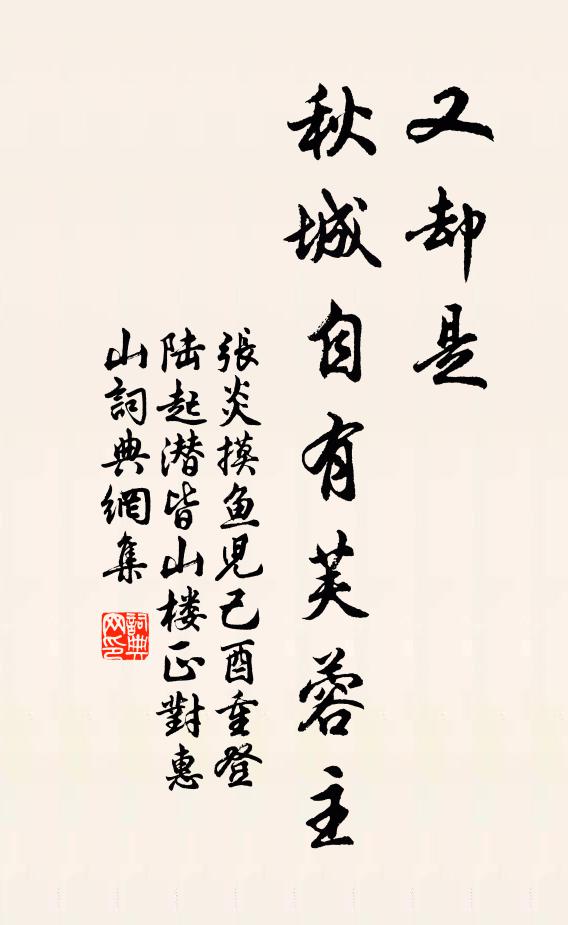 又却是
秋城自有芙蓉主
張炎摸魚児己酉重登
陆起潜皆山楼正對惠
山詞典網集
詞典网印